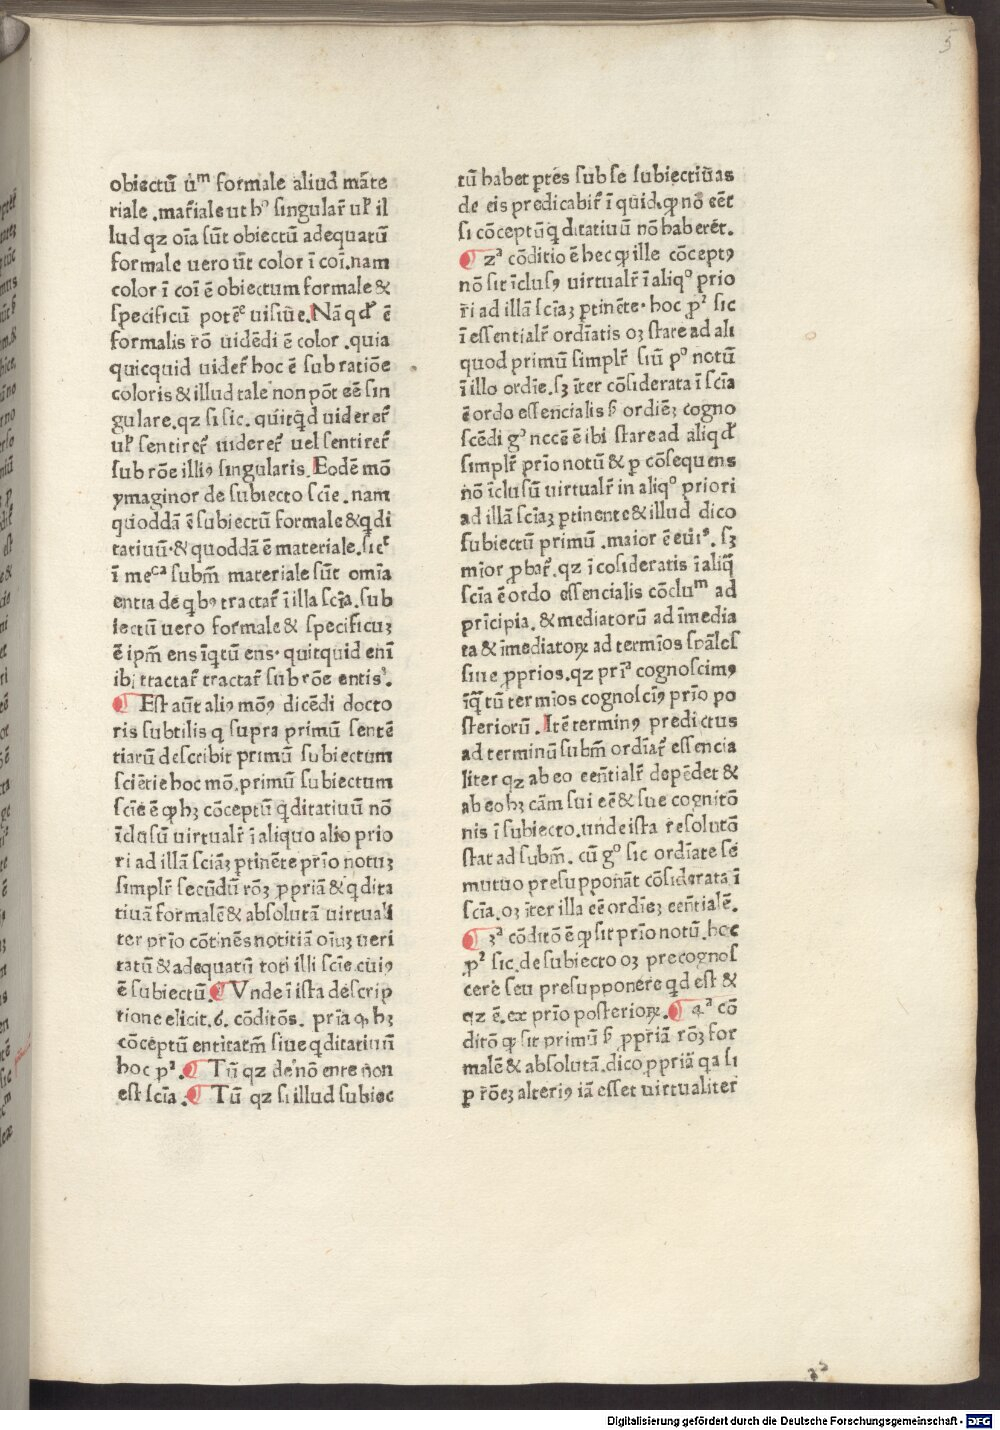 5
obiectū ūᵐ formale aliud māte
riale .mar̃iale ut h⁹ singular̃ ul̃ il
lud qꝫ oīa sūt obiectū adequatū
formale uero ūt color ī coī.nam
color ī coī ē obiectum formale &
specificū potēᶜ uisiue. Nā qd̃ ē
formalis rō uidēdi ē color .quia
quicquid uider̃ hoc ē sub ratiōe
coloris & illud tale non pōt eē sin
gulare.qꝫ si sic. quitq̄d uideret̃
ul̃ sentiret̃ uideret̃ uel sentiret̃
sub rōe illiꝰ singularis. Eodē mō
ymaginor de subiecto sciē.nam
quoddā ē subiectū formale & q̄di
tatiuū.& quoddā ē materiale.sicᵗ
ī meᶜᵃ subm̄ materiale sūt omīa
entia de qb⁹ tractat̃ ī illa scīa.sub
iectū uero formale & specificuꝫ
ē ipm̄ ens īqtū ens. quitquid enī
ibi tractat̃ tractat̃ sub rōe entisˢ.
¶ Est aūt aliꝰ mōꝰ dicēdi docto
ris subtilis q supra primū sentē
tiarū describit primū subiectum
sciētie hoc mō.primū subiectum
sciē ē ꝙ hꝫ cōceptū q̄ditatiuū nō
īclusū uirtualr̃ ī aliquo alio prio
ri ad illā sciāꝫ ꝑtinēte prīo notuꝫ
simplr̃ secūdū rōꝫ ꝓpriā & q̄dita
tiuā formalē & absolutā uirtuali
ter prīo cōtinēs notitiā oīuꝫ ueri
tatū & adequatū toti illi sciē.cuiꝰ
ē subiectū. ¶ Vnde ī ista descrip
tione elicit.6. cōditōs. prīa ꝙ hꝫ
cōceptū entitatm̄ siue q̄ditatiuū
hoc pᶻ. ¶ Tū qꝫ de nō ente non
est scīa. ¶ Tū qꝫ si illud subiec
tū habet ꝑtes sub se subiectiūas
de eis predicabit̃ ī quid.ꝙ nō eēt
si cōceptū q̄ditatiuū nō haberēt.
¶ 2ᵃ cōditio ē hec ꝙ ille cōceptꝰ
nō sit īclusꝰ uirtualr̃ ī aliqᵒ prio
ri ad illā sciaꝫ ꝑtinēte. hoc pᶻ sic
ī essentialr̃ ordīatis oꝫ stare ad ali
quod primū simplr̃ siū pᵒ notū
ī illo ordīe.sꝫ īter cōsiderata ī scīa
ē ordo essencialis ẜ ordiēꝫ cogno
scēdi gᵒ nccē ē ibi stare ad aliqd̃
simplr̃ prīo notū & ꝑ cōsequens
nō īclusū uirtualr̃ in aliqᵒ priori
ad illā sciaꝫ ꝑtinente & illud dico
subiectū primū .maior ē euiˢ. sꝫ
mīor ꝓbat̃. qꝫ ī cōsideratis ī aliq̄
scīa ē ordo essencialis cōcluᵐ ad
prīcipia. & mediatorū ad īmedia
ta & īmediatorꝝ ad termīos spāles
siue ꝓprios.qꝫ priᵃ cognoscimꝰ
īq̄tū termīos cognosciꝰ prīo po
steriorū. Itē terminꝰ predictus
ad terminū subm̄ ordīat̃ essencia
liter qꝫ ab eo eēntialr̃ depēdet &
ab eo hꝫ cām sui eē & sue cognitō
nis ī subiecto.unde ista resolutō
stat ad subm̄. cū gᵒ sic ordīate se
mutuo presupponāt cōsiderata ī
scīa.oꝫ īter illa eē ordiēꝫ eēntialē.
¶ 3ᵃ cōditō ē ꝙ sit prīo notū. hoc
pᶻ sic. de subiecto oꝫ precognos
cere seu presupponere q̄d est &
qꝫ ē. ex prīo posteriorꝝ. ¶ 4ᵃ cō
ditō ꝙ sit primū ẜ ꝓpriā rōꝫ for
malē & absolutā. dico ꝓpriā qa si
ꝑ rōeꝫ alteriꝰ iā esset uirtualiter̃
Digitalisierung gefördert durch die Deutsche Forschungsgemeinschaft - DFG